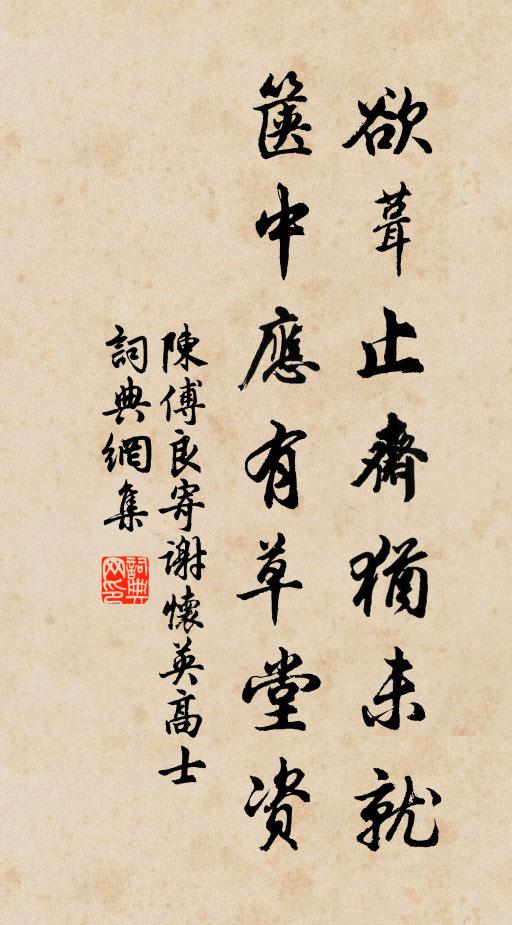 欲葺止齋猶未就
篋中應有草堂資
陳傅良寄謝懷英高士
詞典網集
詞典網印